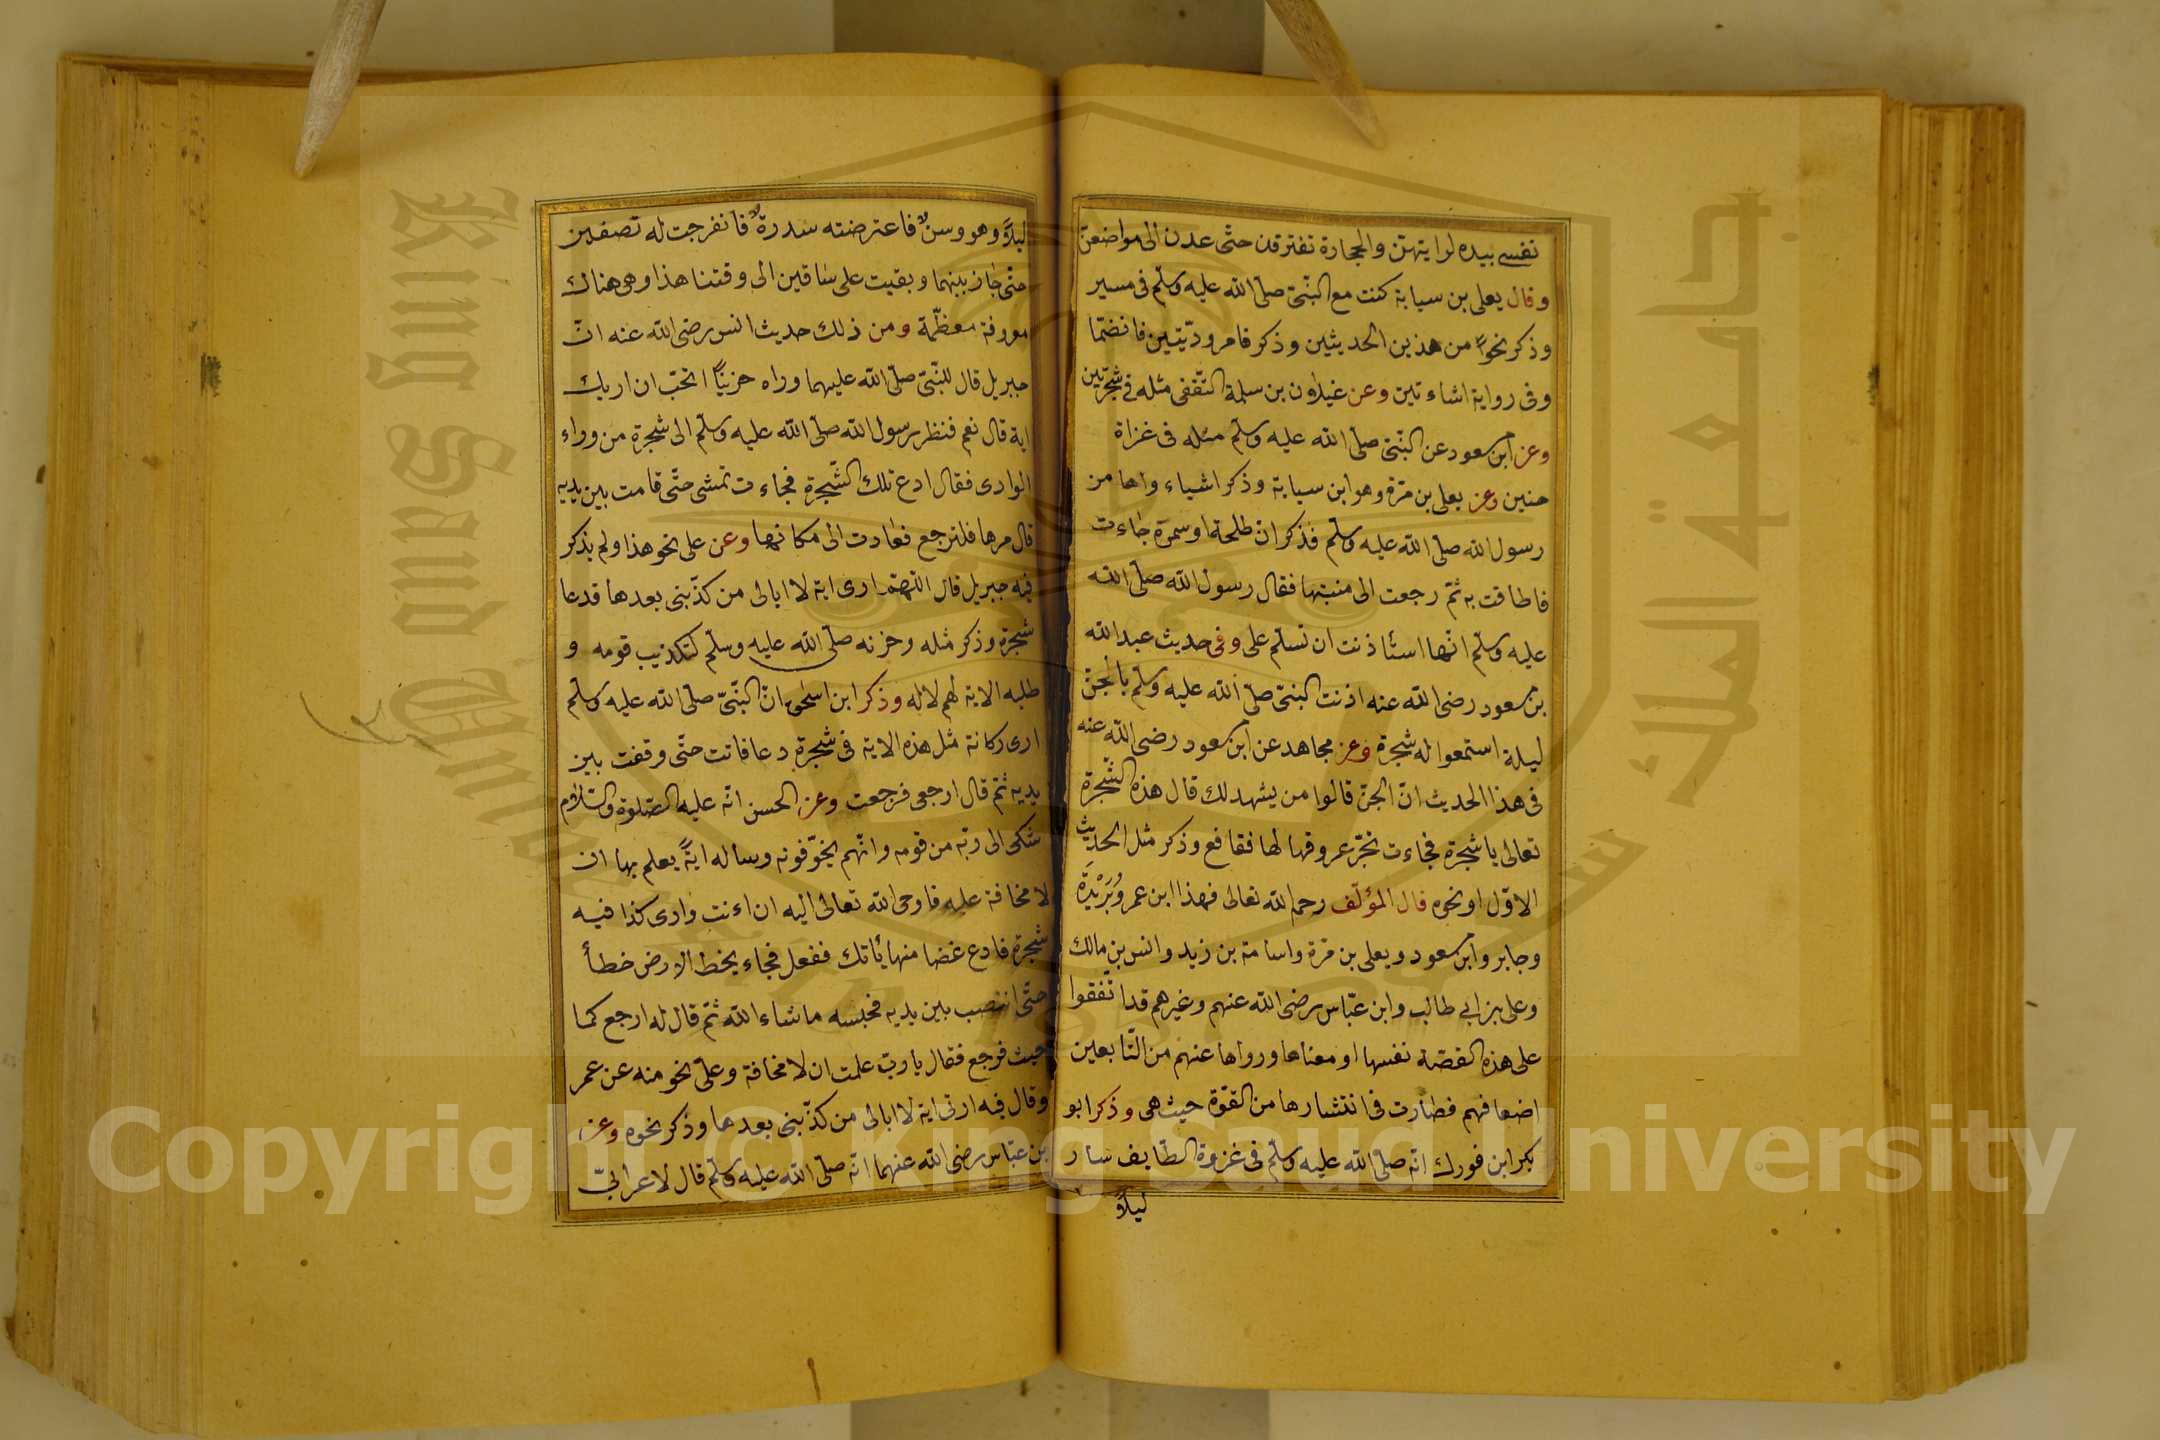 نفسى بيده لرايتهن والحجارة تفترقن حتى عدن الى مواضعهن
وقال يعلى بن سيابة كنت مع النبى صلى الله عليه وسلم فى مسير
وذكر نحوا من هذين الحديثين وذكر فامر وديتين فانضمتا
وفى رواية اشاءتين وعن غيلان بن سلمة الثقفى مثله فى شجرتين
وعن ابن مسعود عن النبى صلى الله عليه وسلم مثله فى غزاة
حنين وعن يعلى بن مرة وهو ابن سيابة وذكر اشياء راها من
رسول الله صلى الله عليه وسلم فذكر ان طلحة او سمرة جاءت
فاطافت به ثم رجعت الى منبتها فقال رسول الله صلى الله
عليه وسلم انها استأذنت ان تسلم على وفى حديث عبد الله
بن مسعود رضى الله عنه اذنت النبى صلى الله عليه وسلم بالجن
ليلة استمعوا له شجرة وعن مجاهد عن ابن مسعود رضى الله عنه
فى هذا الحديث ان الجن قالوا من يشهد لك قال هذه الشجرة
تعالى يا شجرة فجاءت تجر عروقها لها فقافع وذكر مثل الحديث
الاول او نحوه قال المؤلف رحمه الله تعالى فهذا ابن عمر وبريدة
وجابر وابن مسعود ويعلى بن مرة واسامة بن زيد وانس بن مالك
وعلى بن ابى طالب وابن عباس رضى الله عنهم وغيرهم قد اتفقوا
على هذه القصة نفسها او معناها ورواها عنهم من التابعين
اضعافهم فصارت فى انتشارها من القوة حيث هى وذكر ابو
بكر ابن فورك انه صلى الله عليه وسلم فى غزوة الطايف سار
ليلا
ليلا وهو وسن فاعترضته سدرة فانفرجت له نصفين
حتى جاز بينهما وبقيت على ساقين الى وقتنا هذا وهى هناك
معروفة معظمة ومن ذلك حديث انس رضى الله عنه ان
جبريل قال للنبى صلى الله عليهما وراه حزينا اتحب ان اريك
اية قال نعم فنظر رسول الله صلى الله عليه وسلم الى شجرة من وراء
الوادى فقال ادع تلك الشجرة فجاءت تمشى حتى قامت بين يديه
قال مرها فلترجع فعادت الى مكانها وعن على نحو هذا ولم يذكر
فيه جبريل قال اللهم ارى اية لا ابالى من كذبنى بعدها فدعا
شجرة وذكر مثله وحزنه صلى الله عليه وسلم لتكذيب قومه و
طلبه الاية لهم لا له وذكر ابن اسحق ان النبى صلى الله عليه وسلم
ارى ركانة مثل هذه الاية فى شجرة دعا فاتت حتى وقفت بين
يديه ثم قال ارجعى فرجعت وعن الحسن انه عليه الصلوة والسلام
شكى الى ربه من قومه وانهم يخوفونه وساله اية يعلم بها ان
لا مخافة عليه فاوحى الله تعالى اليه ان اءت وادى كذا فيه
شجرة فادع غصنا منها يأتك ففعل فجاء يخط الارض خطا
حتى انتصب بين يديه فحبسه ما شاء الله ثم قال له ارجع كما
جيت فرجع فقال يا رب علمت ان لا مخافة وعلى نحو منه عن عمر
وقال فيه ارنى اية لا ابالى من كذبنى بعدها وذكر نحوه وعن
بن عباس رضى الله عنهما انه صلى الله عليه وسلم قال لاعرابى
King Saud University
جامعة الملك سعود
Copyright © King Saud University